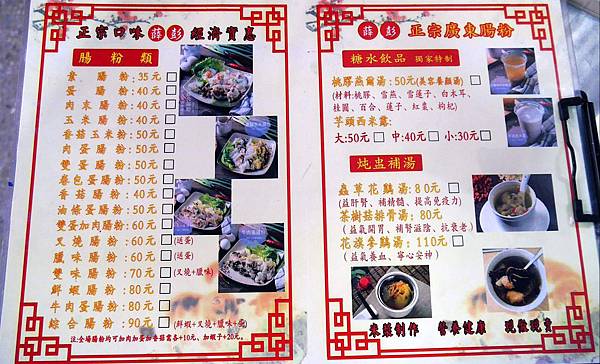 正宗口味 薛彭 經濟實惠
腸粉類
素腸粉:35元□
蛋腸粉:40元□
肉末腸粉:40元□
玉米腸粉:40元□
香菇玉米粉:50元□
肉蛋腸粉:50元□
雙蛋腸粉:50元□
卷包蛋腸粉:50元□
香菇腸粉:40元□
油條蛋腸粉:50元□
雙蛋加肉腸粉:60元□
叉燒腸粉:60元□(送蛋)
臘味腸粉:60元□(送蛋)
雙味腸粉:70元□(叉燒+臘味)
鮮蝦腸粉:80元□
牛肉蛋腸粉:80元□
綜合腸粉:90元□(鮮蝦+叉燒+臘味+蛋)
注:全場腸粉均可加肉加蛋加香菇需各+10元、加蝦子+20元。
薛彭 正宗廣東腸粉
糖水飲品 獨家特制
桃膠燕爾湯:50元(美容養顏湯)
(材料:桃膠、雪燕、雪蓮子、白木耳、
桂圓、百合、蓮子、紅棗、枸杞)
芋頭西米露:
大:50元□ 中:40元□ 小:30元□
炖盅補湯
蟲草花鷄湯:80元□
(益肝腎、補精髓、提高免疫力)
茶樹菇排骨湯:80元□
(益氣開胃、補腎滋陰、抗衰老)
花旗參鷄湯:110元□
(益氣養血、寧心安神)
來莊制作 營養健康 現做現賣